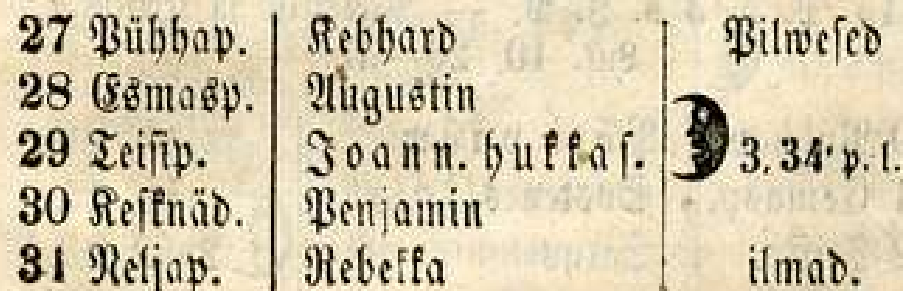 27 Pühhap. Kebhard Pilwesed
28 Esmasp. Augustin
29 Teisip. Joann. hukkas. 3. 34' p. l.
30 Kesknäd. Penjamin
31 Neljap. Rebekka ilmad.